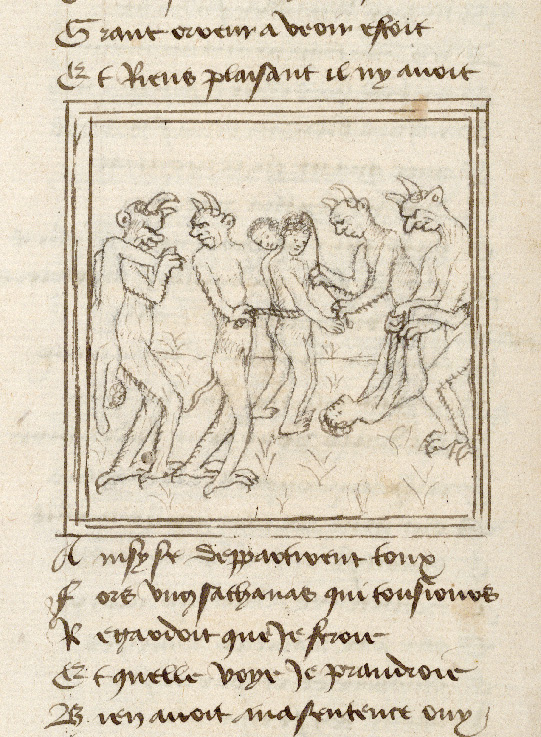 G rant orreur a veoir estoit
E t Riens plaisant il ny avoit
A insy se deppartirent toux
F ors ung sathanas qui tousiours
R egardoit que Je feroie
E t quelle voye Je prandroie
B ien avoit ma sentence ouy